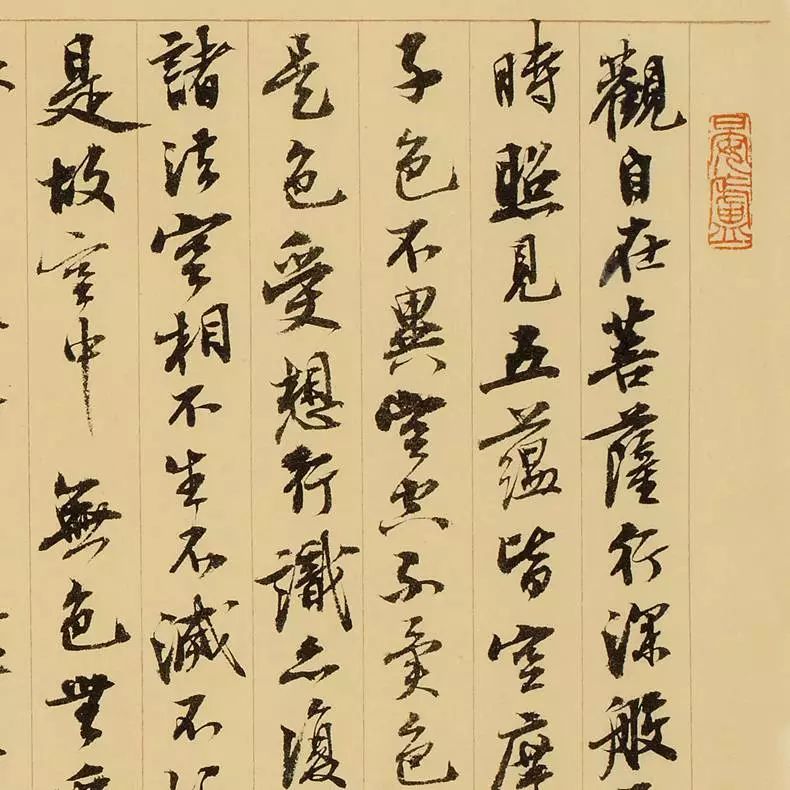 觀自在菩薩行深般
時照見五蘊皆空度
子色不異空空不異色
是色受想行識亦復
諸法空相不生不滅不
是故空中無色無受